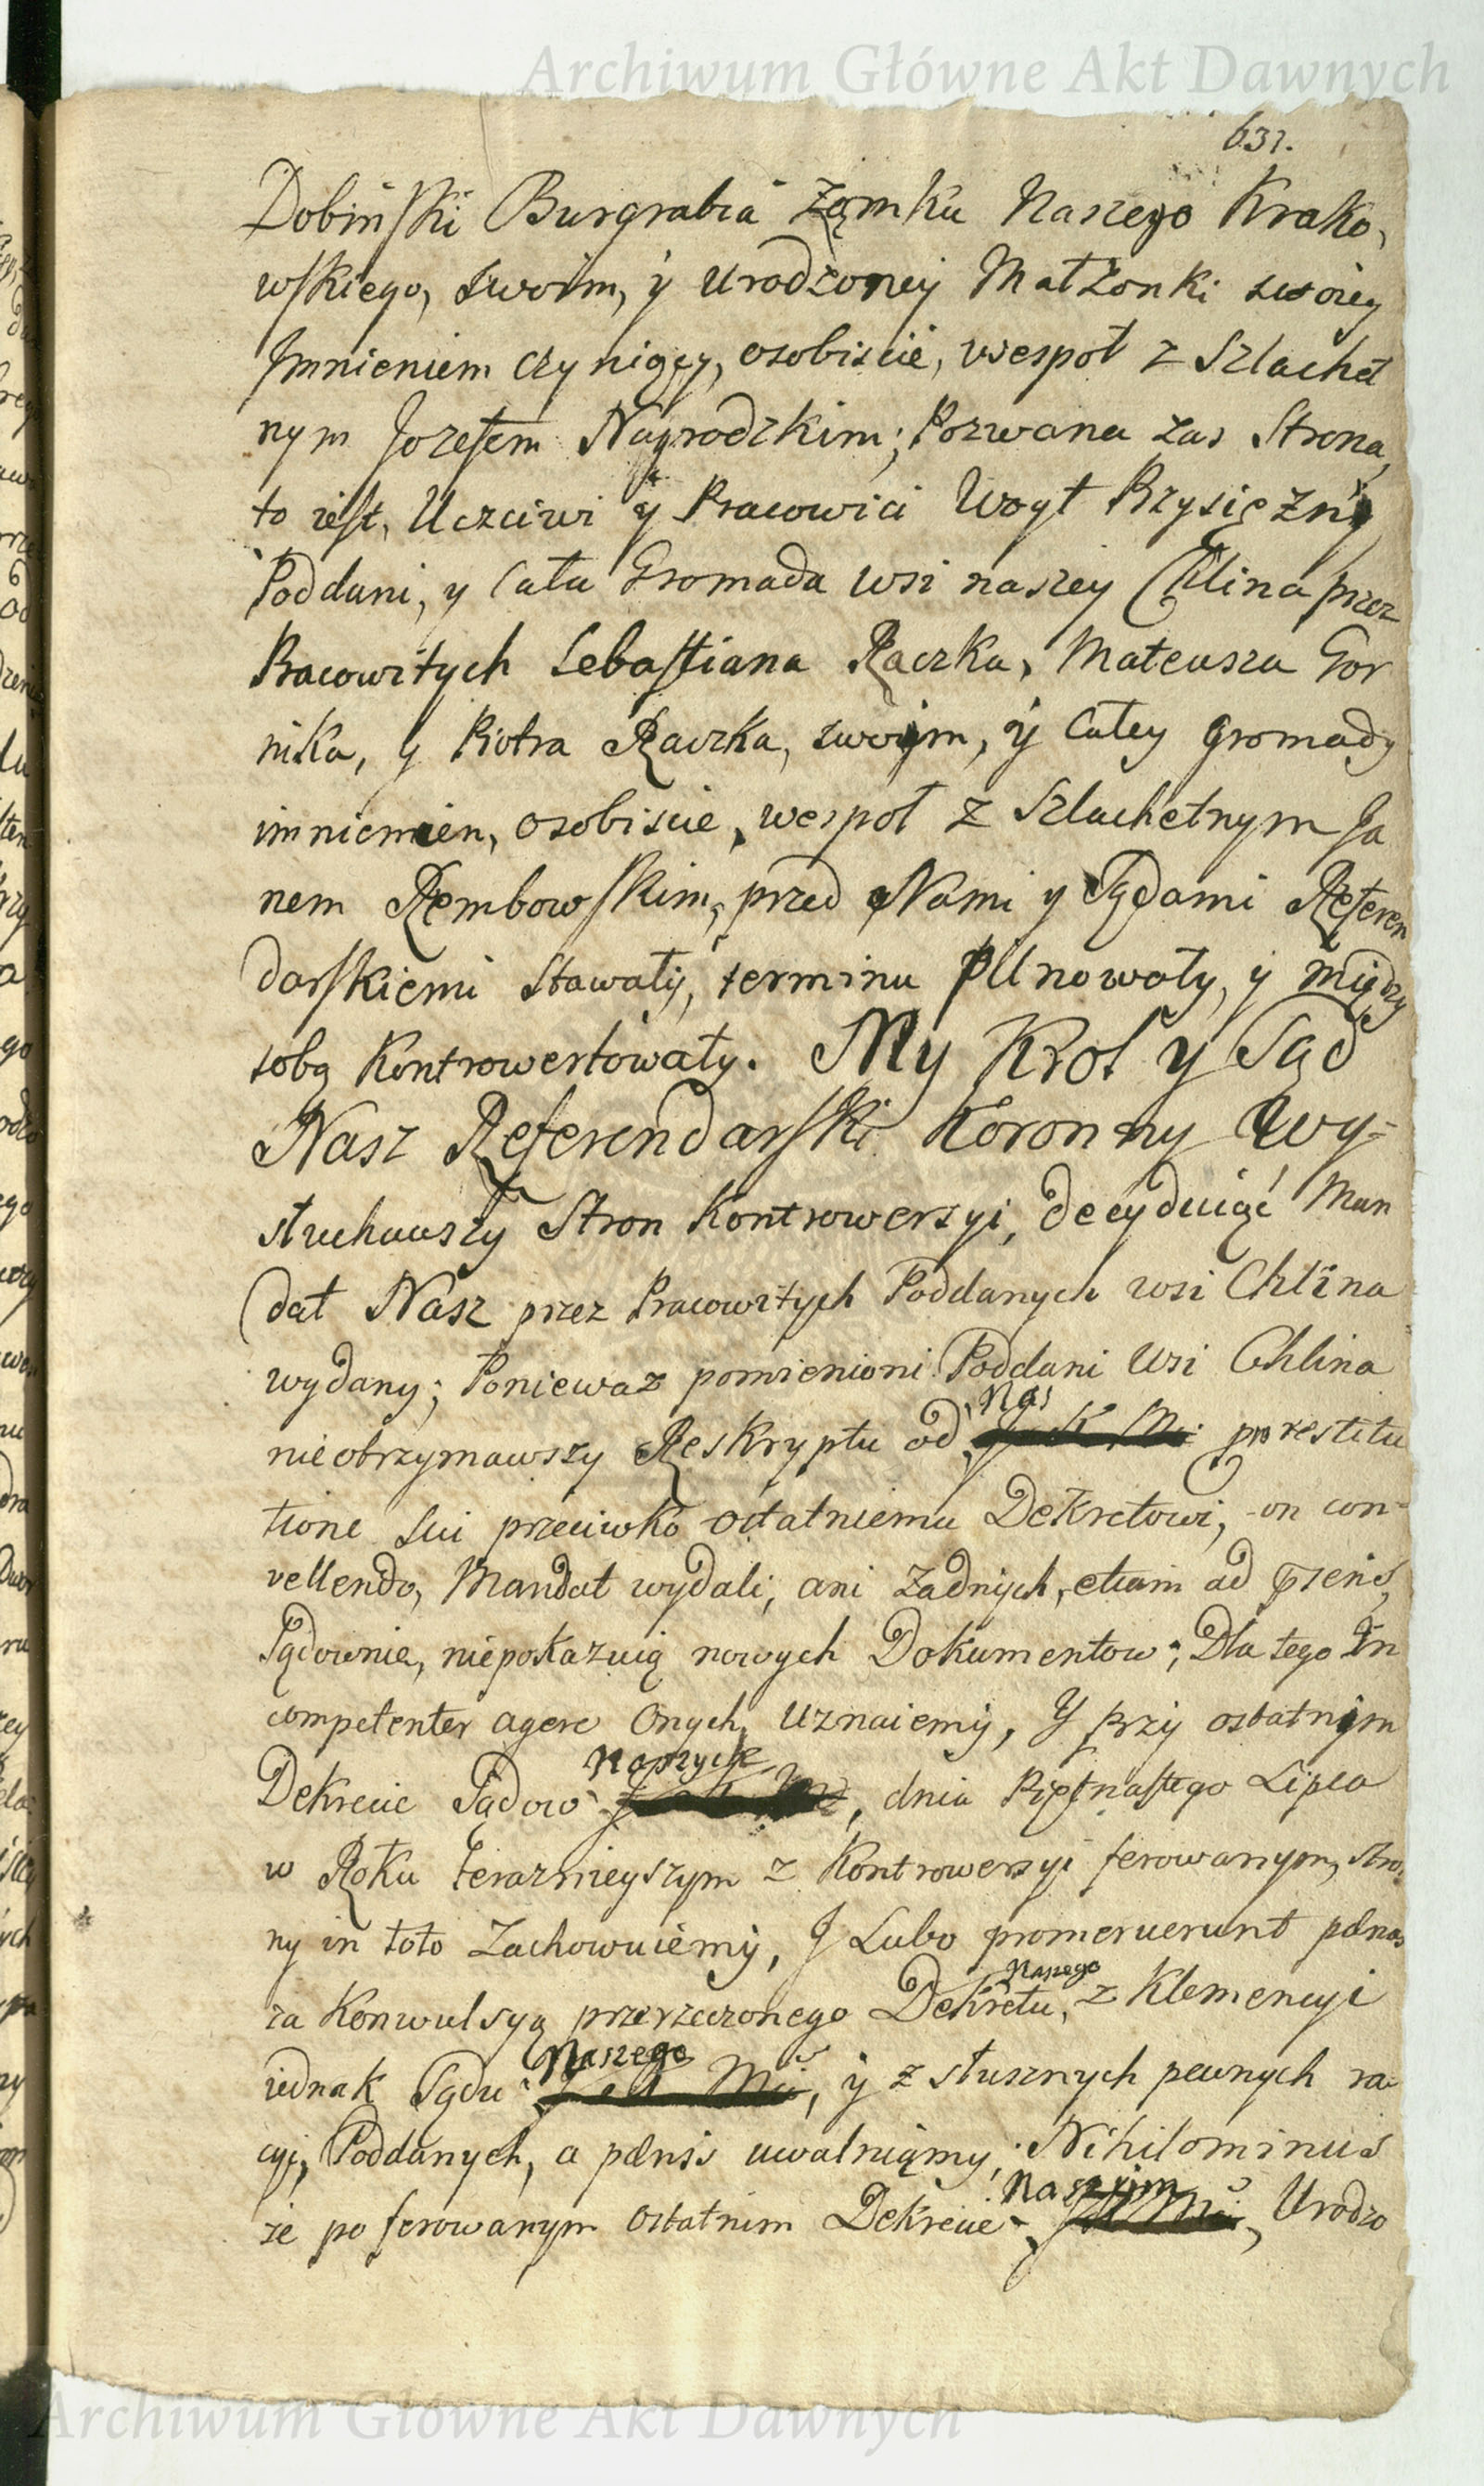 Archiwum Główne Akt Dawnych
631.
Dobinski Burgrabia Zamku Naszego Krako,
wskiego, swoim, y Urodzoney Małżonki swoiey
Imnieniem czyniący, osobiscie, wespoł z Szlachet
nym Jozefem Nagrodzkim; Pozwana zas Strona,
to iest, Uczciwi y Pracowici Woyt Przysiężni
Poddani, y Cała Gromada wsi naszey Chlina przez
Pracowitych Sebastiana Raczka, Mateusza Gor
nika, y Piotra Raczka, swoim, y Całey Gromady
imnieniem, osobiscie, wespoł z Szlachetnym Ja
nem Rembowskim, przed Nami y Sądami Referen
darskiemi Stawały, terminu Pilnowały, y między
sobą Kontrowertowały. My Krol y Sąd
Nasz Referendarski Koronny Wy-
słuchawszy Stron Kontrowersyi, decyduiąc Man
dat Nasz przez Pracowitych Poddanych wsi Chlina
wydany; Poniewaz pomienioni Poddani Wsi Chlina
nieobrzymawszy Reskryptu od Nas pro restitu
tione sui przeciwko ostatniemu Dekretowi, on con-
vellendo, Mandat wydali, ani żadnych, etiam ad psens,
Sądownie, niepokazuią nowych Dokumentow; Dla tego in
competenter agere Onych, Uznaiemy, Y przy ostatnim
Dekrecie Sądow Naszych, dnia Piętnastego Lipca
w Roku teraznieyszym z Kontrowersyi ferowanym, stro,
ny in toto Zachowuiemy, I Lubo promeruerunt pænas
za Konwulsyą przerzeczonego Dekretu, Naszego z Klemencyi
iednak Sądu Naszego, y z słusznych pewnych ra
cyi, Poddanych, a pænis uwalniamy, Nihilominus
ze po ferowanym Ostatnim Dekrecie Naszym, Urodzo
Archiwum Główne Akt Dawnych